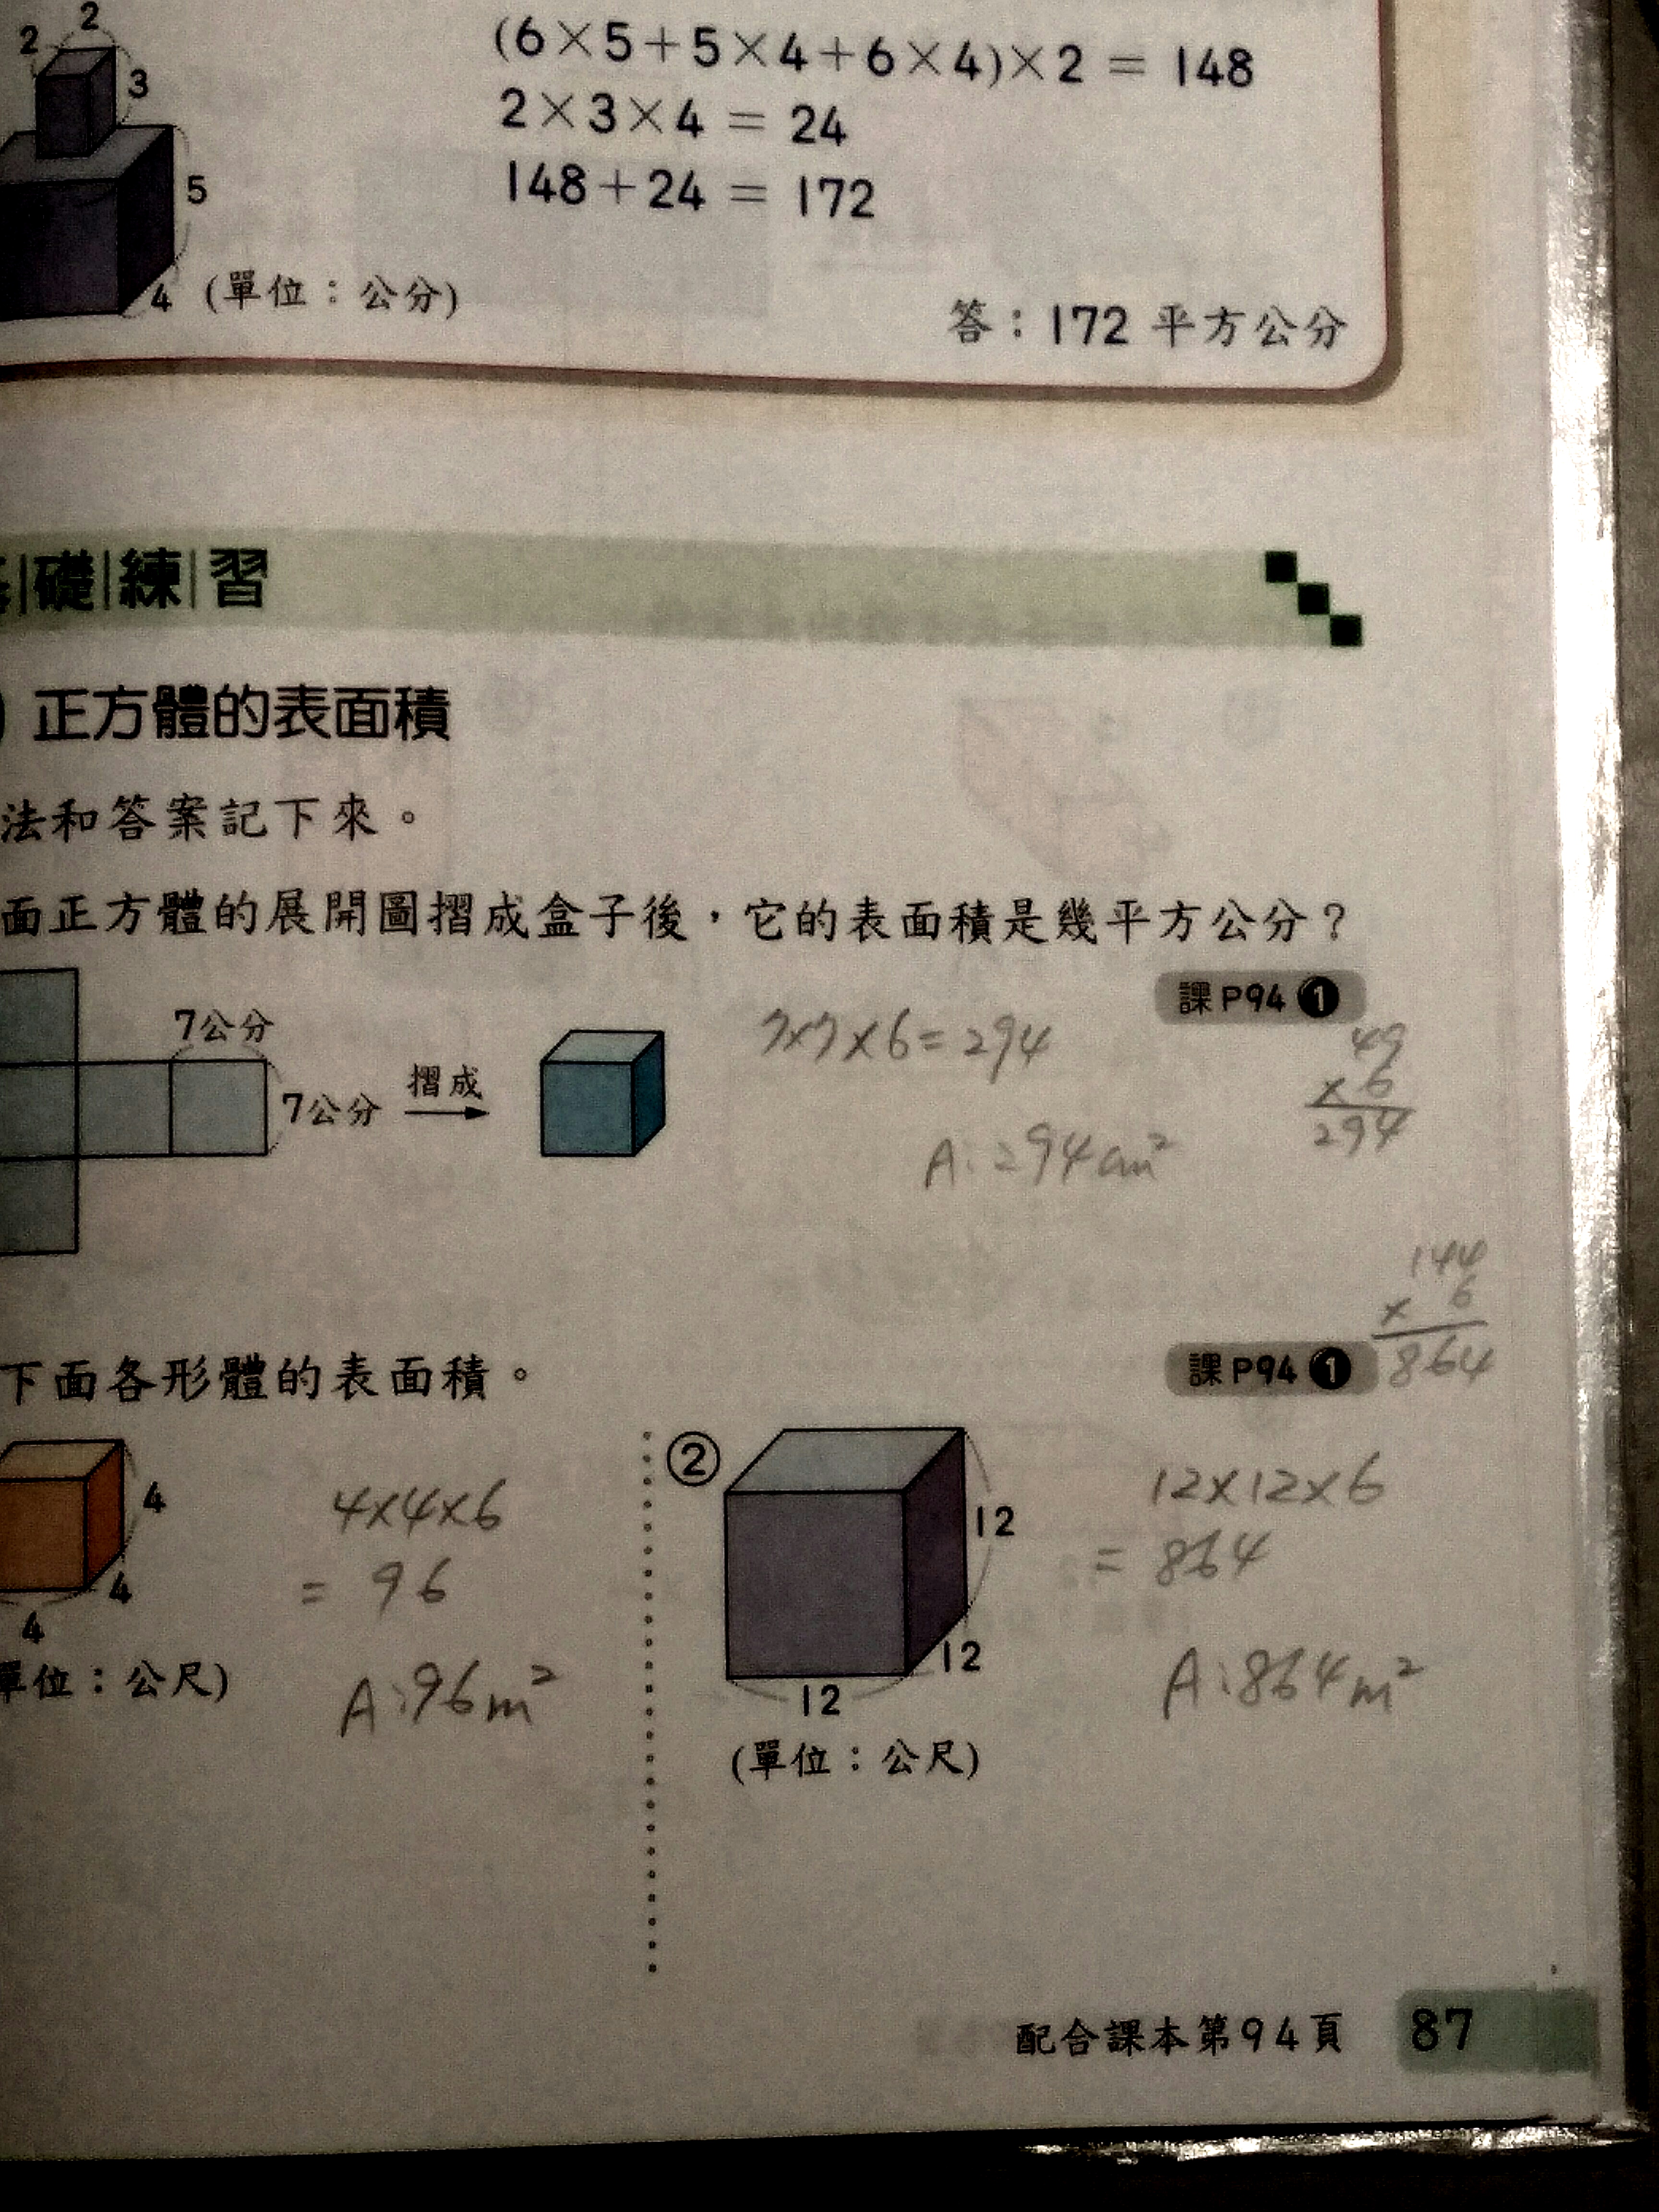 2
2
3
5
4 (單位：公分)
(6×5+5×4+6×4)×2 = 148
2×3×4 = 24
148+24 = 172
答：172 平方公分
礎 練 習
正方體的表面積
法和答案記下來。
面正方體的展開圖摺成盒子後，它的表面積是幾平方公分？
課P94 1
7公分
7公分
摺成
7×7×6=294
A:294cm²
49
×6
294
下面各形體的表面積。
課P94 1
144
× 6
864
4
4
4
單位：公尺)
4×4×6
= 96
A:96m²
②
12
12
12
(單位：公尺)
12×12×6
= 864
A:864m²
配合課本第94頁 87